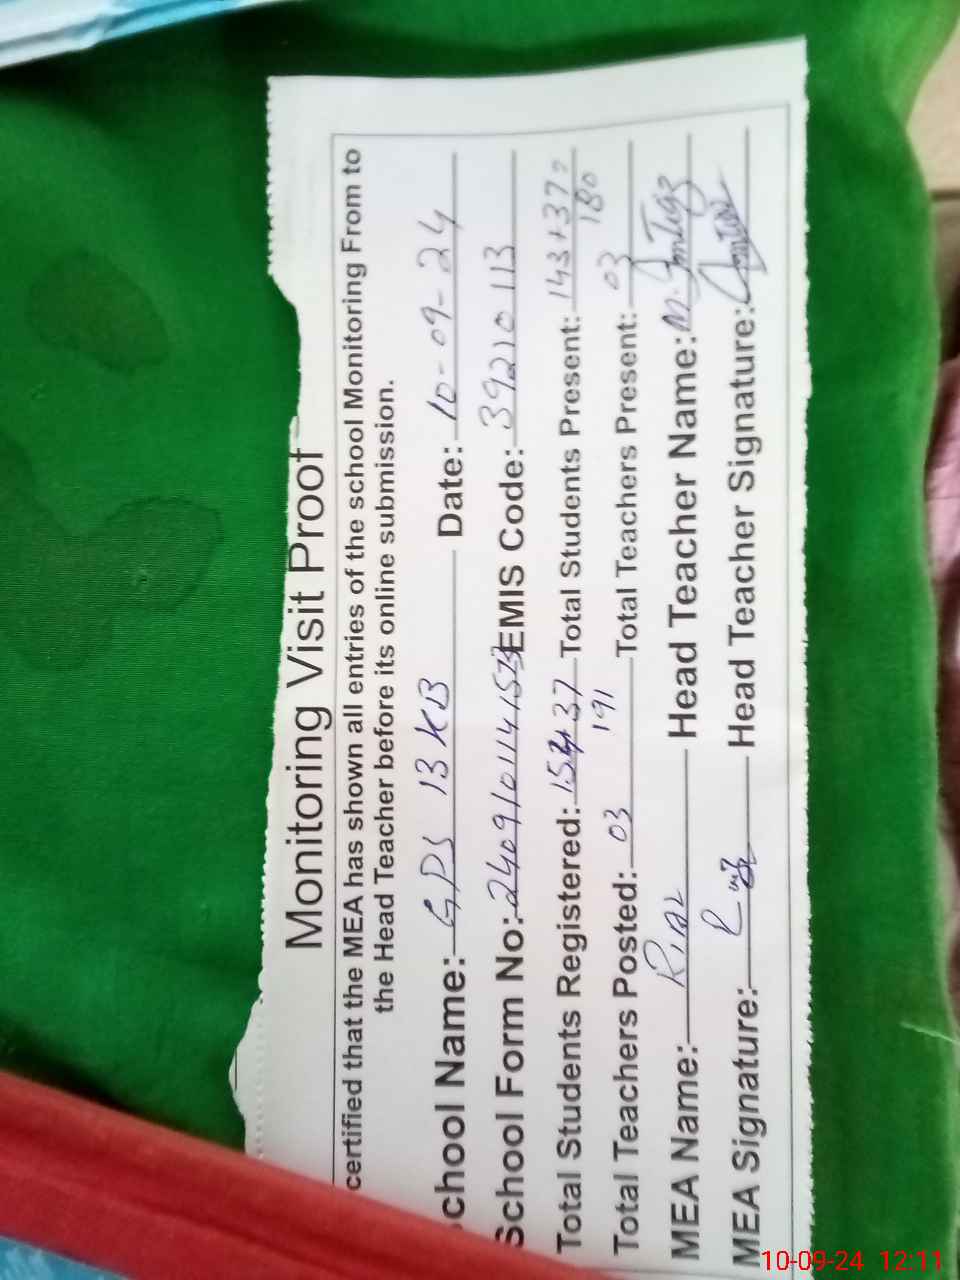 Monitoring Visit Proof
certified that the MEA has shown all entries of the school Monitoring From to
the Head Teacher before its online submission.
chool Name: GPS 13 KB Date: 10-09-24
School Form No: EMIS Code: 39210113
Total Students Registered: 154+37 Total Students Present: 143+37=
191 180
Total Teachers Posted: 03 Total Teachers Present: 03
MEA Name: Head Teacher Name: M.
MEA Signature: Head Teacher Signature:
10-09-24 12:11